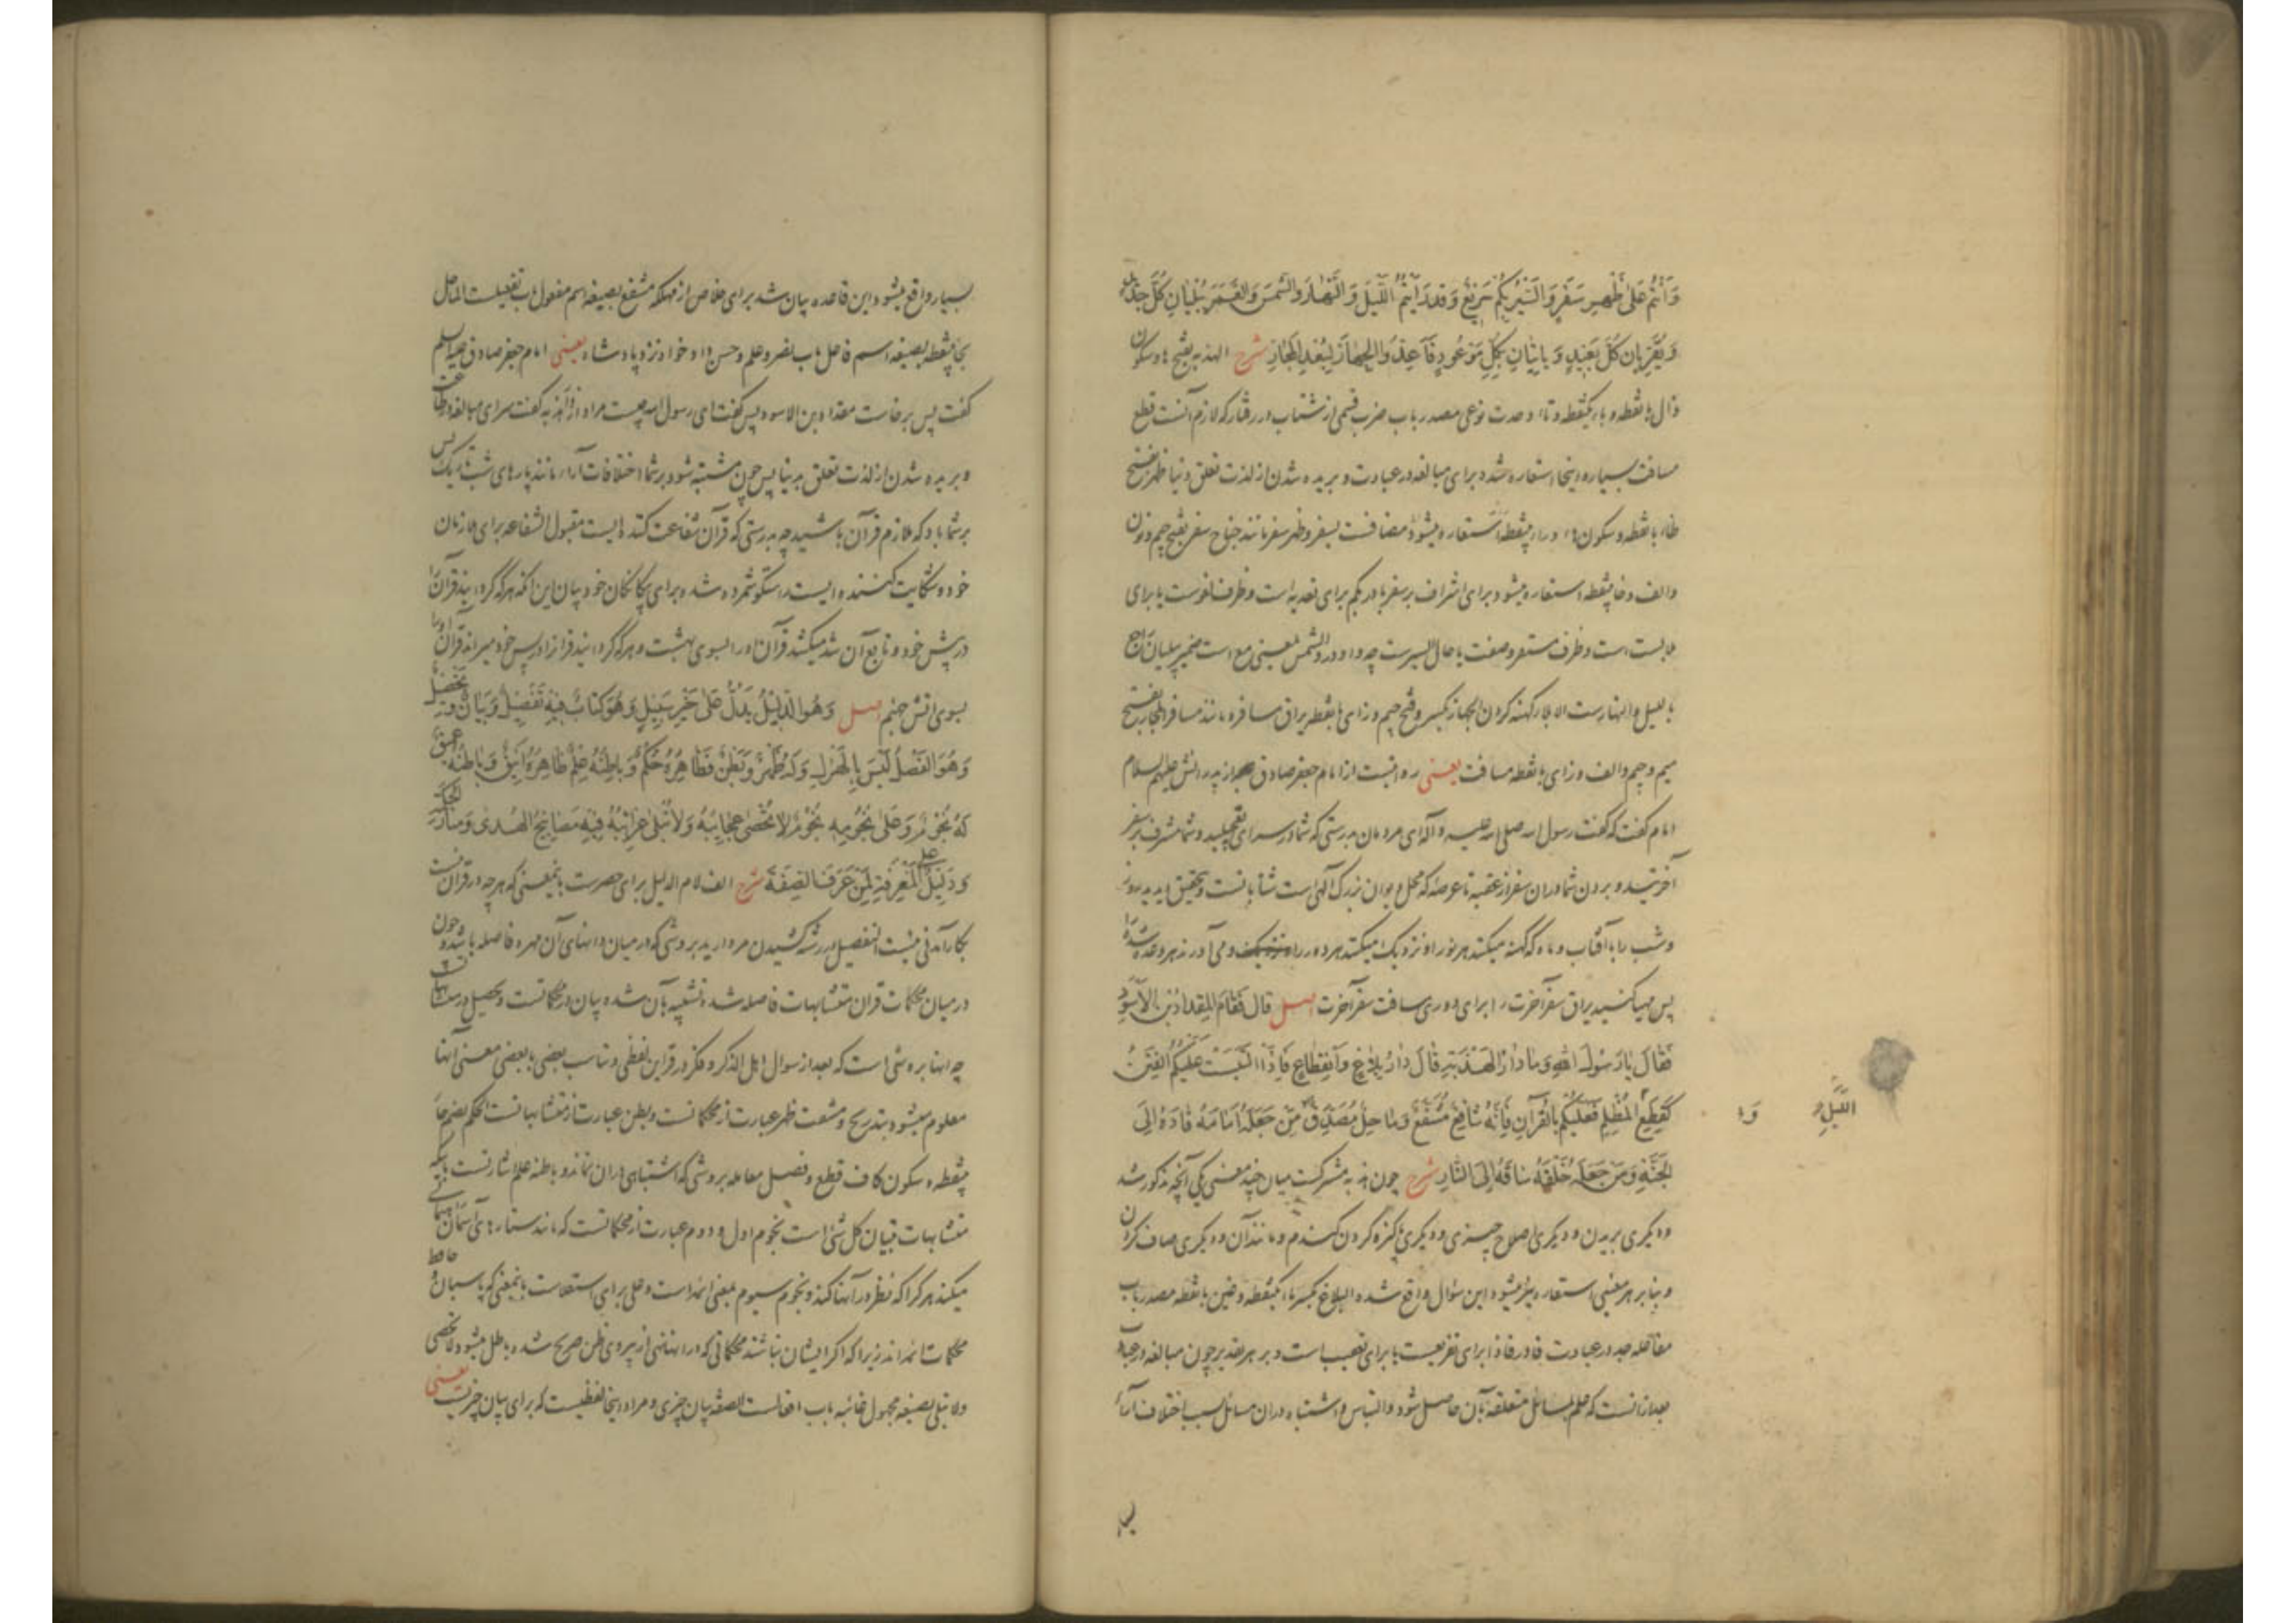 وَاَنْتُمْ عَلٰی ظَهْرِ سَفَرٍ وَالسَّیْرُ بِکُمْ سَرِیْعٌ وَقَدْ رَاَیْتُمُ اللَّیْلَ وَالنَّهَارَ وَالشَّمْسَ وَالْقَمَرَ یُبْلِیَانِ کُلَّ جَدِیْدٍ
وَیُقَرِّبَانِ کُلَّ بَعِیْدٍ وَیَاْتِیَانِ بِکُلِّ مَوْعُوْدٍ فَاَعِدُّوا الْجِهَازَ لِبُعْدِ الْمَجَازِ شرح الهذبه بفتح ها و سکون
ذال با نقطه و باء یکنقطه و تاء وحدت نوعی مصدر باب ضرب قسمی از شتاب در رفتار که لازم آنست قطع
مسافت بسیار و اینجا استعاره شده برای مبالغه در عبادت و بریده شدن از لذت تعلق دنیا ظهر بفتح
ظاء با نقطه و سکون هاء و راء بینقطه استعاره میشود مضافست بسفر و ظهر سفر مانند جناح سفر بفتح جیم و نون
والف و حا بینقطه استعاره میشود برای اشراف بر سفر با در بکم برای تعدیه است و ظرف لغوست یا برای
ملابست است و ظرف مستقر و صفت یا حال السیرست چه واو در والشمس بمعنی مع است ضمیر یبلیان راجع
بالیل والنهارست الابلا کهنه کردن الجهاز بکسر و فتح جیم و زای با نقطه یراق مسافر و مانند مسافر المجاز بفتح
میم و جیم والف و زای با نقطه مسافت یعنی روایتست از امام جعفر صادق از پدرانش علیهم السلام
امام گفت که گفت رسول الله صلی الله علیه و آله ای مردمان بدرستی که شما در سرای تعجیلید و شما مشرف بر سفر
آخرتید و بردن شما در ان سفر از عقبه تا عرصه که محل دیوان بزرگ آلهی است شتابانست و بتحقیق دیدید روز
و شب را با آفتاب و ماه که کهنه میکنند هر نو را و نزدیک میکنند هر دور را و می آورند هر وعده شده را
پس مهیا کنید یراق سفر آخرت را برای دوری مسافت سفر آخرت اصل قَالَ فَقَامَ الْمِقْدَادُ بْنُ الْاَسْوَدِ
فَقَالَ یَا رَسُوْلَ اللهِ وَمَا دَارُ الْهَذْبَةِ قَالَ دَارُ بِلَاغٍ وَانْقِطَاعٍ فَاِذَا الْتَبَسَتْ عَلَیْکُمُ الْفِتَنُ
کَقِطَعِ الْمُظْلِمِ فَعَلَیْکُمْ بِالْقُرْآنِ فَاِنَّهُ شَافِعٌ مُشَفَّعٌ وَمَاحِلٌ مُصَدَّقٌ مَنْ جَعَلَهُ اَمَامَهُ قَادَهُ اِلَی
اللَّیْلِ وَ
الْجَنَّةِ وَمَنْ جَعَلَهُ خَلْفَهُ سَاقَهُ اِلَی النَّارِ شرح چون هذبه مشترکست میان چند معنی یکی آنچه مذکور شد
و دیگری بریدن و دیگری اصلاح چیزی و دیگری پاکیزه کردن گندم و مانند آن و دیگری صاف کردن
و بنابر هر معنی استعاره نیز میشود این سؤال واقع شده البلاغ بکسر باء یکنقطه و غین با نقطه مصدر باب
مفاعله جد در عبادت فا در فاذا برای تفریعست یا برای تعقیب است و بر هر تقدیر چون مبالغه در عبادت
بعد از انست که علم بمسائل متعلقه بآن حاصل شود و التباس و اشتباه در ان مسائل بسبب اختلاف آراء
بسیار واقع میشود این قاعده بیان شد برای خلاص از مهلکه مشفع بصیغه اسم مفعول باب تفعیلست الماحل
بحا بینقطه بصیغه اسم فاعل باب نصر و علم و حسن دادخواه نزد پادشاه یعنی امام جعفر صادق علیه السلام
گفت پس برخاست مقداد بن الاسود پس گفت ای رسول الله چیست مراد از دار هذبه گفت سرای مبالغه در طاعت
و بریده شدن از لذت تعلق بدنیا پس چون مشتبه شود بر شما اختلافات آراء مانند پارهای شب تاریک پس
بر شما باد که ملازم قرآن باشید چه بدرستی که قرآن شفاعت کننده ایست مقبول الشفاعه برای ملازمان
خود و شکایت کننده ایست راستگو شمرده شده برای بیگانگان خود بیان این آنکه هر که گردانید قرآن را
در پیش خود و تابع آن شد میکشد قرآن او را بسوی بهشت و هر که گردانید قرآن را در پس خود میراند قرآن او را
بسوی آتش جهنم اصل وَهُوَ الدَّلِیْلُ یَدُلُّ عَلٰی خَیْرِ سَبِیْلٍ وَهُوَ کِتَابٌ فِیْهِ تَفْصِیْلٌ وَبَیَانٌ وَتَحْصِیْلٌ
وَهُوَ الْفَصْلُ لَیْسَ بِالْهَزْلِ وَلَهُ ظَهْرٌ وَبَطْنٌ فَظَاهِرُهُ حُکْمٌ وَبَاطِنُهُ عِلْمٌ ظَاهِرُهُ اَنِیْقٌ وَبَاطِنُهُ عَمِیْقٌ
لَهُ نُجُوْمٌ وَعَلٰی نُجُوْمِهِ نُجُوْمٌ لَا تُحْصٰی عَجَائِبُهُ وَلَا تُبْلٰی غَرَائِبُهُ فِیْهِ مَصَابِیْحُ الْهُدٰی وَمَنَارُ الْحِکْمَةِ
وَدَلِیْلٌ عَلَی الْمَعْرِفَةِ لِمَنْ عَرَفَ الصِّفَةَ شرح الف لام الدلیل برای حصرست بایمعنی که هر چه در قرآن نیست
بکار آمدنی نیست التفصیل در رشته کشیدن مروارید بروشی که در میان دانهای آن مهره فاصله باشد و چون
در میان محکمات قرآن متشابهات فاصله شده تشبیه بآن شده بیان در محکماتست و تحصیل در متشابهات
چه اینها بروشی است که بعد از سوال اهل الذکر و فکر در قراین لفظی و تناسب بعضی با بعضی معنی آنها
معلوم میشود بتدریج و مشقت ظهر عبارت از محکماتست و بطن عبارت از متشابهاتست الحکم بضم حاء
بینقطه و سکون کاف قطع و فصل معامله بروشی که اشتباهی در ان نماند و باطنه علم اشارتست باینکه
متشابهات تبیان کل شئ است نجوم اول و دوم عبارت از محکماتست که مانند ستارهای آسمان
میکند هر کرا که نظر در آنها کند و نجوم سیوم بمعنی ائمه است و علی برای استعلاست بایمعنی که پاسبان و حافظ
محکمات ائمه اند زیرا که اگر ایشان نباشند محکماتی که در انها نهی از پیروی ظن صریح شده باطل میشود لا تحصی
ولا تبلی بصیغه مجهول غائبه باب افعالست الصفه بیان چیزی و مراد اینجا لفظیست که برای بیان چیزیست یعنی